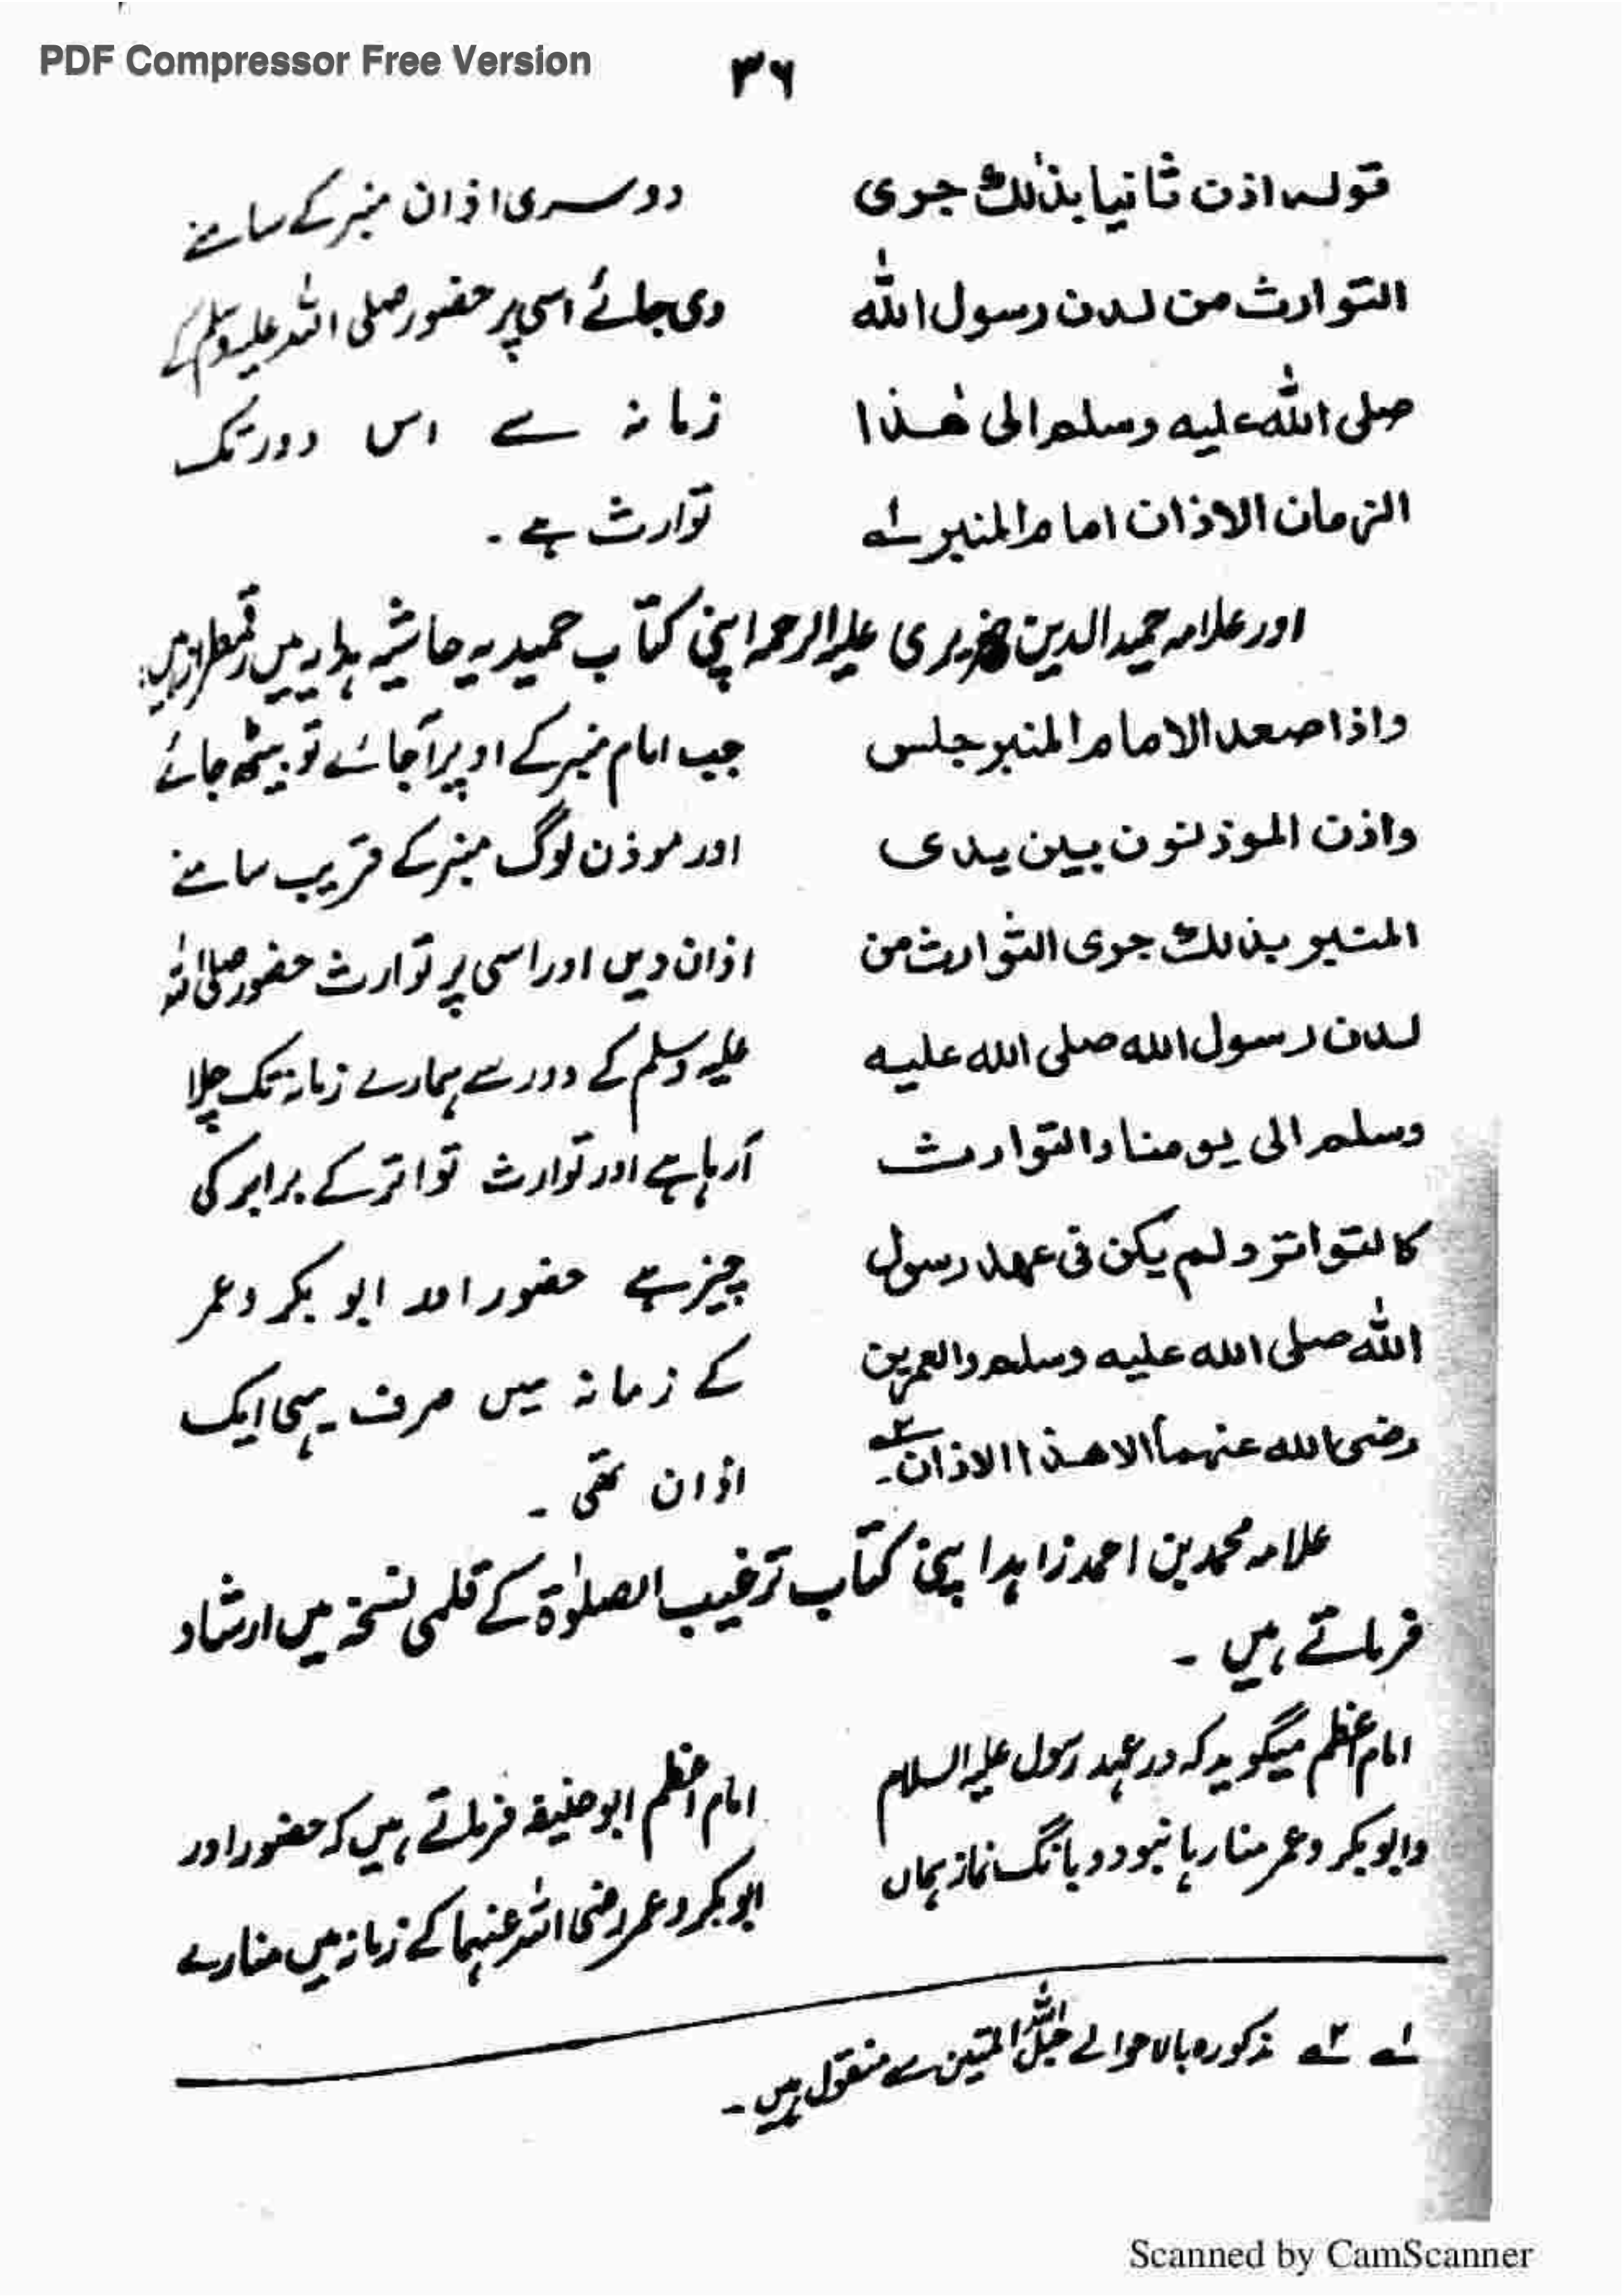 PDF Compressor Free Version
۳۶
قولہ اذن ثانیا بذٰلك جری
التوارث من لدن رسول اللّٰہ
صلی اللّٰہ علیہ وسلم الی ھٰذا
الزمان الاذان امام المنبر ۱ے
دوسری اذان منبر کے سامنے
دی جائے اسی پر حضور صلی اللہ علیہ وسلم کے
زمانہ سے اس دور تک
توارث ہے۔
اور علامہ حمید الدین ضریری علیہ الرحمہ اپنی کتاب حمیدیہ حاشیہ ہدایہ میں رقمطراز ہیں:
واذا صعد الامام المنبر جلس
واذن الموذنون بین یدی
المنبر بذالك جری التوارث من
لدن رسول اللہ صلی اللہ علیہ
وسلم الی یومنا والتوارث
کالتواتر ولم یکن فی عھد رسول
اللّٰہ صلی اللہ علیہ وسلم والعمرین
رضی اللہ عنہما الا ھذا الاذان۔ ۲ے
جب امام منبر کے اوپر آجائے تو بیٹھ جائے
اور موذن لوگ منبر کے قریب سامنے
اذان دیں اور اسی پر توارث حضور صلی اللہ
علیہ وسلم کے دور سے ہمارے زمانہ تک چلا
آرہا ہے اور توارث تواتر کے برابر کی
چیز ہے حضور اور ابو بکر و عمر
کے زمانہ میں صرف یہی ایک
اذان تھی ۔
علامہ محمد بن احمد زاہد اپنی کتاب ترغیب الصلوٰۃ کے قلمی نسخہ میں ارشاد
فرماتے ہیں ۔
امام اعظم میگوید کہ در عہد رسول علیہ السلام
وابو بکر وعمر منارہا نبود و بانگ نماز ہماں
امام اعظم ابو حنیفہ فرماتے ہیں کہ حضور اور
ابو بکر و عمر رضی اللہ عنہما کے زمانہ میں منارے
۱ے ۲ے مذکورہ بالا حوالے حبل اللّٰہ المتین سے منقول ہیں۔
Scanned by CamScanner